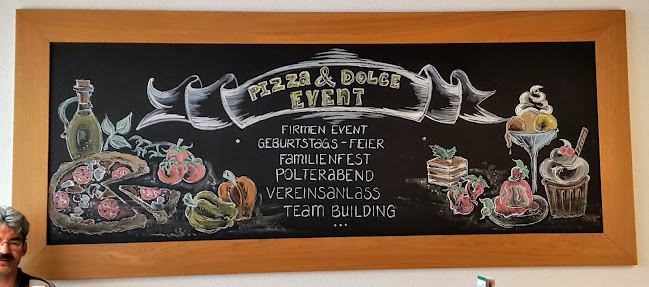 PIZZA & DOLCE
EVENT
FIRMEN EVENT
GEBURTSTAGS-FEIER
FAMILIENFEST
POLTERABEND
VEREINSANLASS
TEAM BUILDING
...